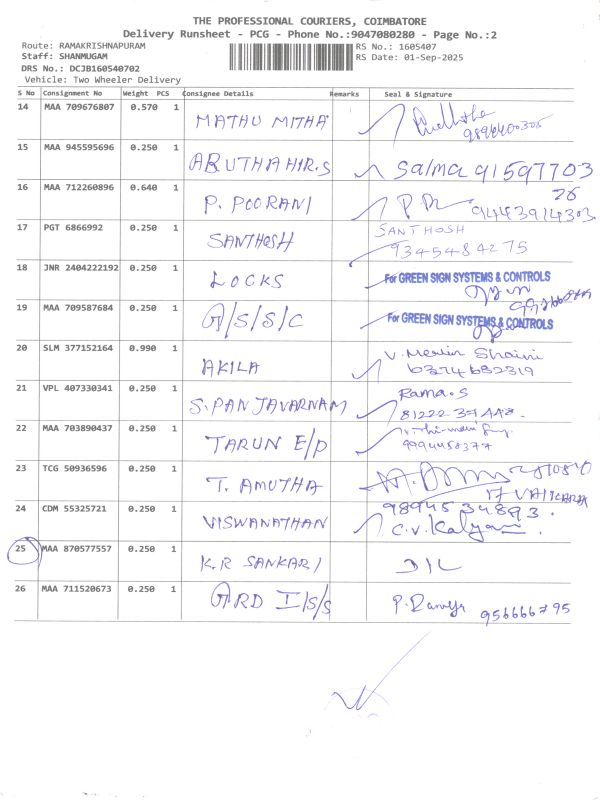 THE PROFESSIONAL COURIERS, COIMBATORE
Delivery Runsheet - PCG - Phone No.:9047080280 - Page No.:2
Route: RAMAKRISHNAPURAM
Staff: SHANMUGAM
DRS No.: DCJB160540702
Vehicle: Two Wheeler Delivery
RS No.: 1605407
RS Date: 01-Sep-2025
S No Consignment No Weight PCS Consignee Details Remarks Seal & Signature
14 MAA 709676807 0.570 1 MATHU MITHA
15 MAA 945595696 0.250 1 ARUTHAHIR.S Salma 91597703
26
16 MAA 712260896 0.640 1 P. POORANI 9443914303
17 PGT 6866992 0.250 1 SANTHOSH SANTHOSH
9345484275
18 JNR 2404222192 0.250 1 LOCKS For GREEN SIGN SYSTEMS & CONTROLS
19 MAA 709587684 0.250 1 A/S/S/C For GREEN SIGN SYSTEMS & CONTROLS
20 SLM 377152164 0.990 1 AKILA V. Merlin Shaini
6374682319
21 VPL 407330341 0.250 1 S. PANJAVARNAM Rama.S
22 MAA 703890437 0.250 1 TARUN E/P
9994458377
23 TCG 50936596 0.250 1 T. AMUTHA
24 CDM 55325721 0.250 1 VISWANATHAN 9894534893.
C.V. Kalyani.
25 MAA 870577557 0.250 1 K.R SANKARI D/L
26 MAA 711520673 0.250 1 ARD I/S/S